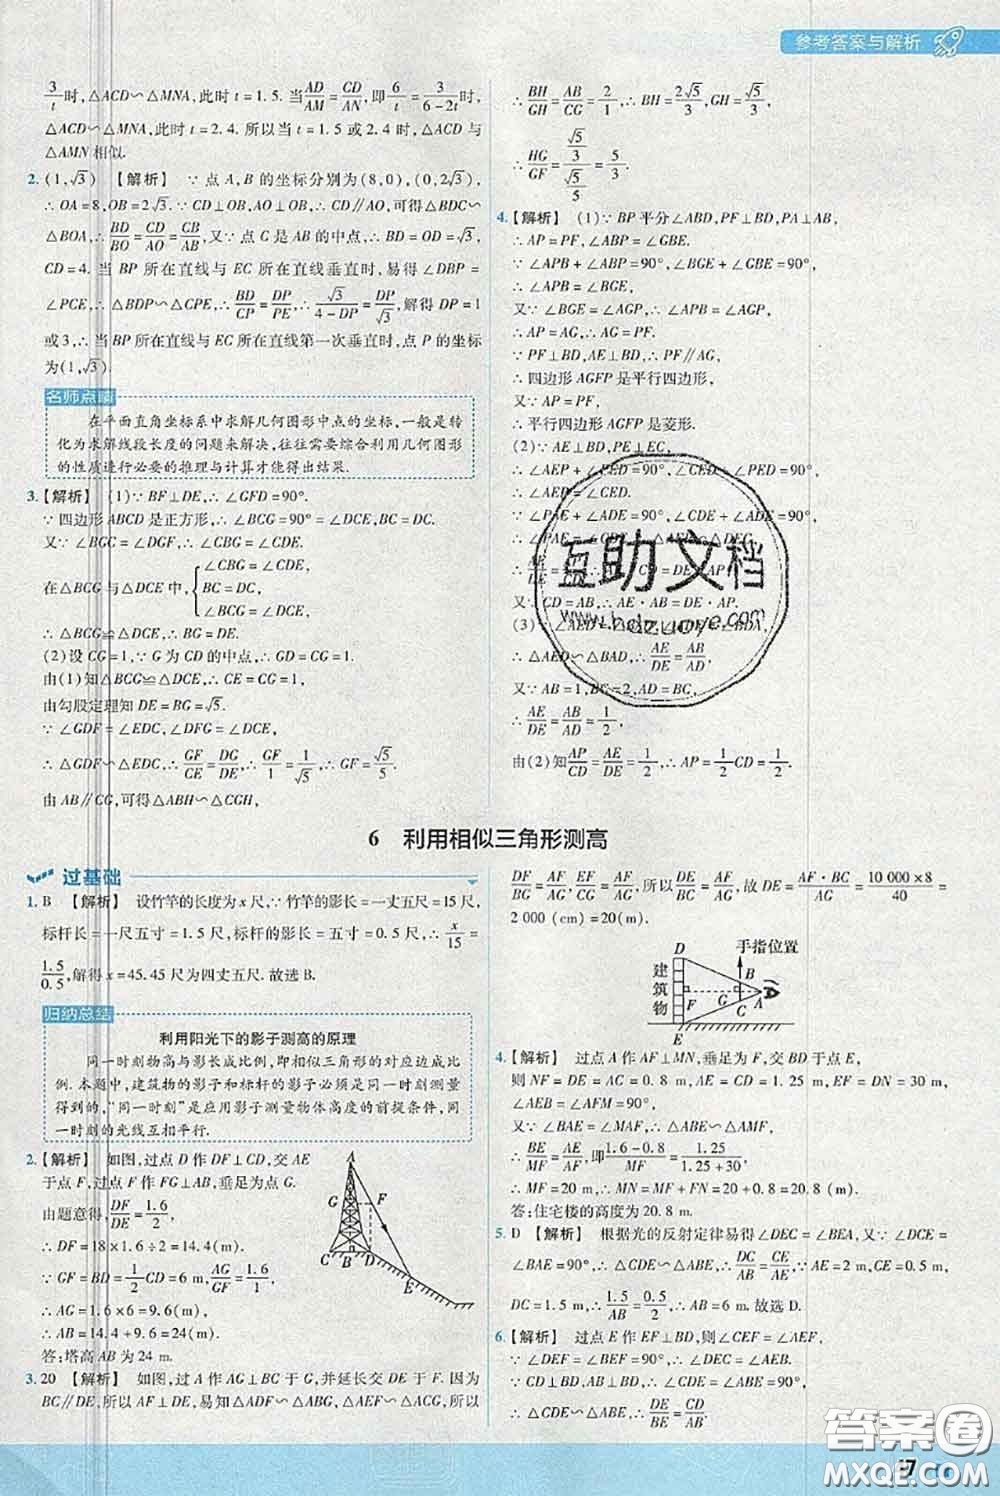 参考答案与解析
3/t时,△ACD∽△MNA,此时t=1.5. 当AD/AM=CD/AN,即6/t=3/(6-2t)时,
△ACD∽△MNA,此时t=2.4. 所以当t=1.5或2.4时,△ACD与
△AMN相似.
2. (1,√3) 【解析】 ∵点A,B的坐标分别为(8,0),(0,2√3),
∴OA=8,OB=2√3. ∵CD⊥OB,AO⊥OB,∴CD∥AO,可得△BDC∽
△BOA,∴BD/BO=CD/AO=CB/AB,又∵点C是AB的中点,∴BD=OD=√3,
CD=4. 当BP所在直线与EC所在直线垂直时,易得∠DBP=
∠PCE,∴△BDP∽△CPE,∴BD/CP=DP/PE,∴√3/(4-DP)=DP/√3,解得DP=1
或3,∴当BP所在直线与EC所在直线第一次垂直时,点P的坐标
为(1,√3).
名师点睛
在平面直角坐标系中求解几何图形中点的坐标,一般是转
化为求解线段长度的问题来解决,往往需要综合利用几何图形
的性质进行必要的推理与计算才能得出结果.
3.【解析】 (1)∵BF⊥DE,∴∠GFD=90°.
∵四边形ABCD是正方形,∴∠BCG=90°=∠DCE,BC=DC.
又∵∠BGC=∠DGF,∴∠CBG=∠CDE.
在△BCG与△DCE中,{∠CBG=∠CDE,
BC=DC,
∠BCG=∠DCE,
∴△BCG≌△DCE,∴BG=DE.
(2)设CG=1,∵G为CD的中点,∴GD=CG=1.
由(1)知△BCG≌△DCE,∴CE=CG=1.
由勾股定理知DE=BG=√5.
∵∠GDF=∠EDC,∠DFG=∠DCE,
∴△GDF∽△EDC,∴GF/CE=DG/DE,∴GF/1=1/√5,∴GF=√5/5.
由AB∥CG,可得△ABH∽△CGH,
∴BH/GH=AB/CG=2/1,∴BH=2√5/3,GH=√5/3,
∴HG/GF=(√5/3)/(√5/5)=5/3.
4.【解析】 (1)∵BP平分∠ABD,PF⊥BD,PA⊥AB,
∴AP=PF,∠ABP=∠GBE.
∵∠APB+∠ABP=90°,∠BGE+∠GBE=90°,
∴∠APB=∠BGE,
又∵∠BGE=∠AGP,∴∠APB=∠AGP,
∴AP=AG,∴AG=PF.
∵PF⊥BD,AE⊥BD,∴PF∥AG,
∴四边形AGFP是平行四边形,
又∵AP=PF,
∴平行四边形AGFP是菱形.
(2)∵AE⊥BD,PE⊥EC,
∴∠AEP+∠PED=90°,∠CED+∠PED=90°,
∴∠AEP=∠CED.
又∵CD=AB,∴AE·AB=DE·AP.
∴△AED∽△BAD,∴AE/DE=AB/AD,
又∵AB=1,BC=2,AD=BC,
∴AE/DE=AB/AD=1/2,
由(2)知AP/CD=AE/DE=1/2,∴AP=1/2CD=1/2.
互助文档
6 利用相似三角形测高
过基础
1. B 【解析】 设竹竿的长度为x尺,∵竹竿的影长=一丈五尺=15尺,
标杆长=一尺五寸=1.5尺,标杆的影长=五寸=0.5尺,∴x/15=
1.5/0.5,解得x=45.45尺为四丈五尺.故选B.
归纳总结
利用阳光下的影子测高的原理
同一时刻物高与影长成比例,即相似三角形的对应边成比
例.本题中,建筑物的影子和标杆的影子必须是同一时刻测量
得到的,“同一时刻”是应用影子测量物体高度的前提条件,同
一时刻的光线互相平行.
2.【解析】 如图,过点D作DF⊥CD,交AE
于点F,过点F作FG⊥AB,垂足为点G.
由题意得,DF/DE=1.6/2,
∴DF=18×1.6÷2=14.4(m).
∵GF=BD=1/2CD=6 m,AG/GF=1.6/1,
∴AG=1.6×6=9.6(m).
∴AB=14.4+9.6=24(m).
答:塔高AB为24 m.
A
G F
C B D E
3. 20 【解析】 如图,过A作AG⊥BC于G,并延长交DE于F.因为
BC∥DE,所以AF⊥DE,易知△ABC∽△ADE,△ACG∽△AEF,所以
DF/BG=AF/AG,EF/CG=AF/AG,所以DE/BC=AF/AG,故DE=AF·BC/AG=10 000×8/40=
2 000 (cm)=20(m).
D 手指位置
建筑物 F G A
C
E
4.【解析】 过点A作AF⊥MN,垂足为F,交BD于点E,
则NF=DE=AC=0.8 m,AE=CD=1.25 m,EF=DN=30 m,
∴∠AEB=∠AFM=90°.
又∵∠BAE=∠MAF,∴△ABE∽△AMF,
∴BE/MF=AE/AF,即(1.6-0.8)/MF=1.25/(1.25+30),
∴MF=20 m,∴MN=MF+FN=20+0.8=20.8(m).
答:住宅楼的高度为20.8 m.
5. D 【解析】 根据光的反射定律易得∠DEC=∠AEB,又∵∠DCE=
∠BAE=90°,∴△CDE∽△ABE,∴DC/AB=CE/AE,∵AE=2 m,CE=0.5 m,
DC=1.5 m,∴1.5/AB=0.5/2,∴AB=6 m.故选D.
6.【解析】 过点E作EF⊥BD,则∠CEF=∠AEF,
∵∠DEF=∠BEF=90°,∴∠DEC=∠AEB.
又∵∠CDE=∠ABE=90°,
∴△CDE∽△ABE,∴DE/BE=CD/AB,
答案圈
MXQE.COM